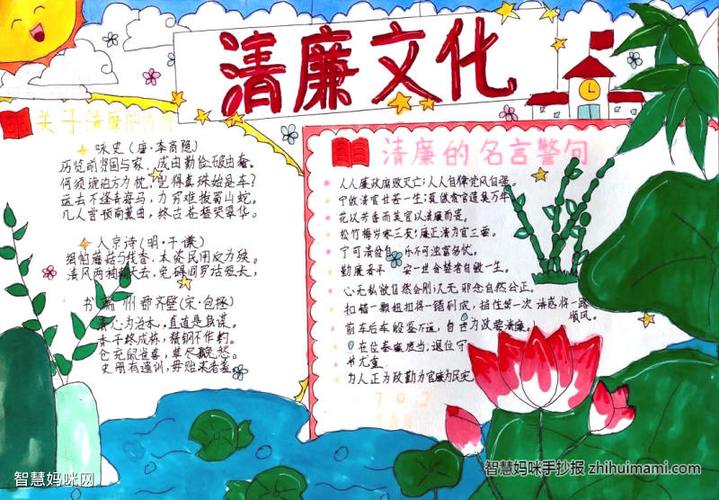 清廉文化
关于清廉的古诗
咏史（唐·李商隐）
历览前贤国与家，成由勤俭破由奢。
何须琥珀方为枕，岂得真珠始是车？
运去不逢青海马，力穷难拔蜀山蛇。
几人曾预南薰曲，终古苍梧哭翠华。
入京诗（明·于谦）
绢帕蘑菇与线香，本资民用反为殃。
清风两袖朝天去，免得闾阎话短长，
书端州郡齐壁（宋·包拯）
清心为治本，直道是身谋。
秀干终成栋，精钢不作钩。
仓充鼠雀喜，草尽狐兔愁。
史册有遗训，毋贻来者羞
清廉的名言警句
人人廉政腐败灭亡；人人自律党风自强。
宁做清廉苦一生；莫做贪官遗臭万年
花以芳香而美官以清廉而是。
松竹梅岁寒三友；廉正清为官三要。
宁可清贫自 乐不可浊富多忧。
勤廉香千 安一世贪婪者自毁一生。
心无私欲自然会刚；人无邪念自然公正。
扣错一颗纽扣将一错到底，挡住第一次诱惑将一路顺风。
前车后车般鉴不远，自 力改要清廉。
在位基廉质当；退位守
书尤重
为人正为政勤为官廉为民
智慧妈咪网
智慧妈咪手抄报 zhihuimami.com